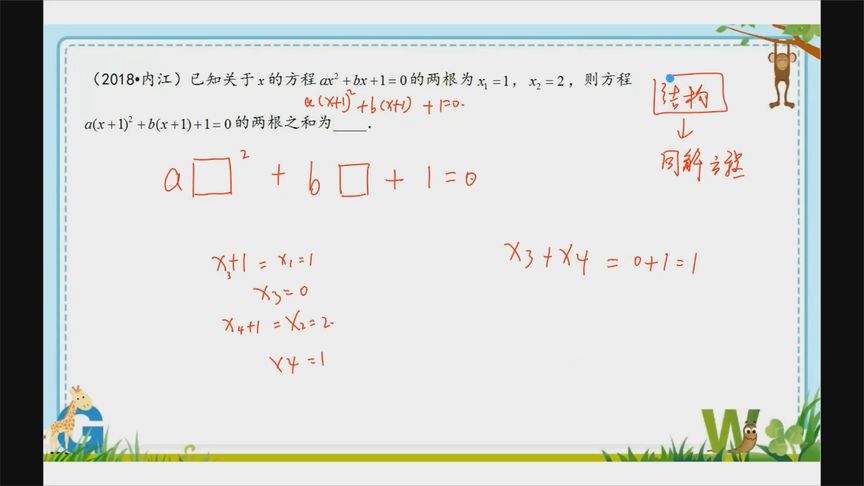 （2018•内江）已知关于x的方程ax²+bx+1=0的两根为x₁=1，x₂=2，则方程
a(x+1)²+b(x+1)+1=0.
a(x+1)²+b(x+1)+1=0的两根之和为____.
结构
↓
同解方程
a□²+b□+1=0
x₃+1=x₁=1
x₃=0
x₄+1=x₂=2.
x₄=1
x₃+x₄=0+1=1
G
W